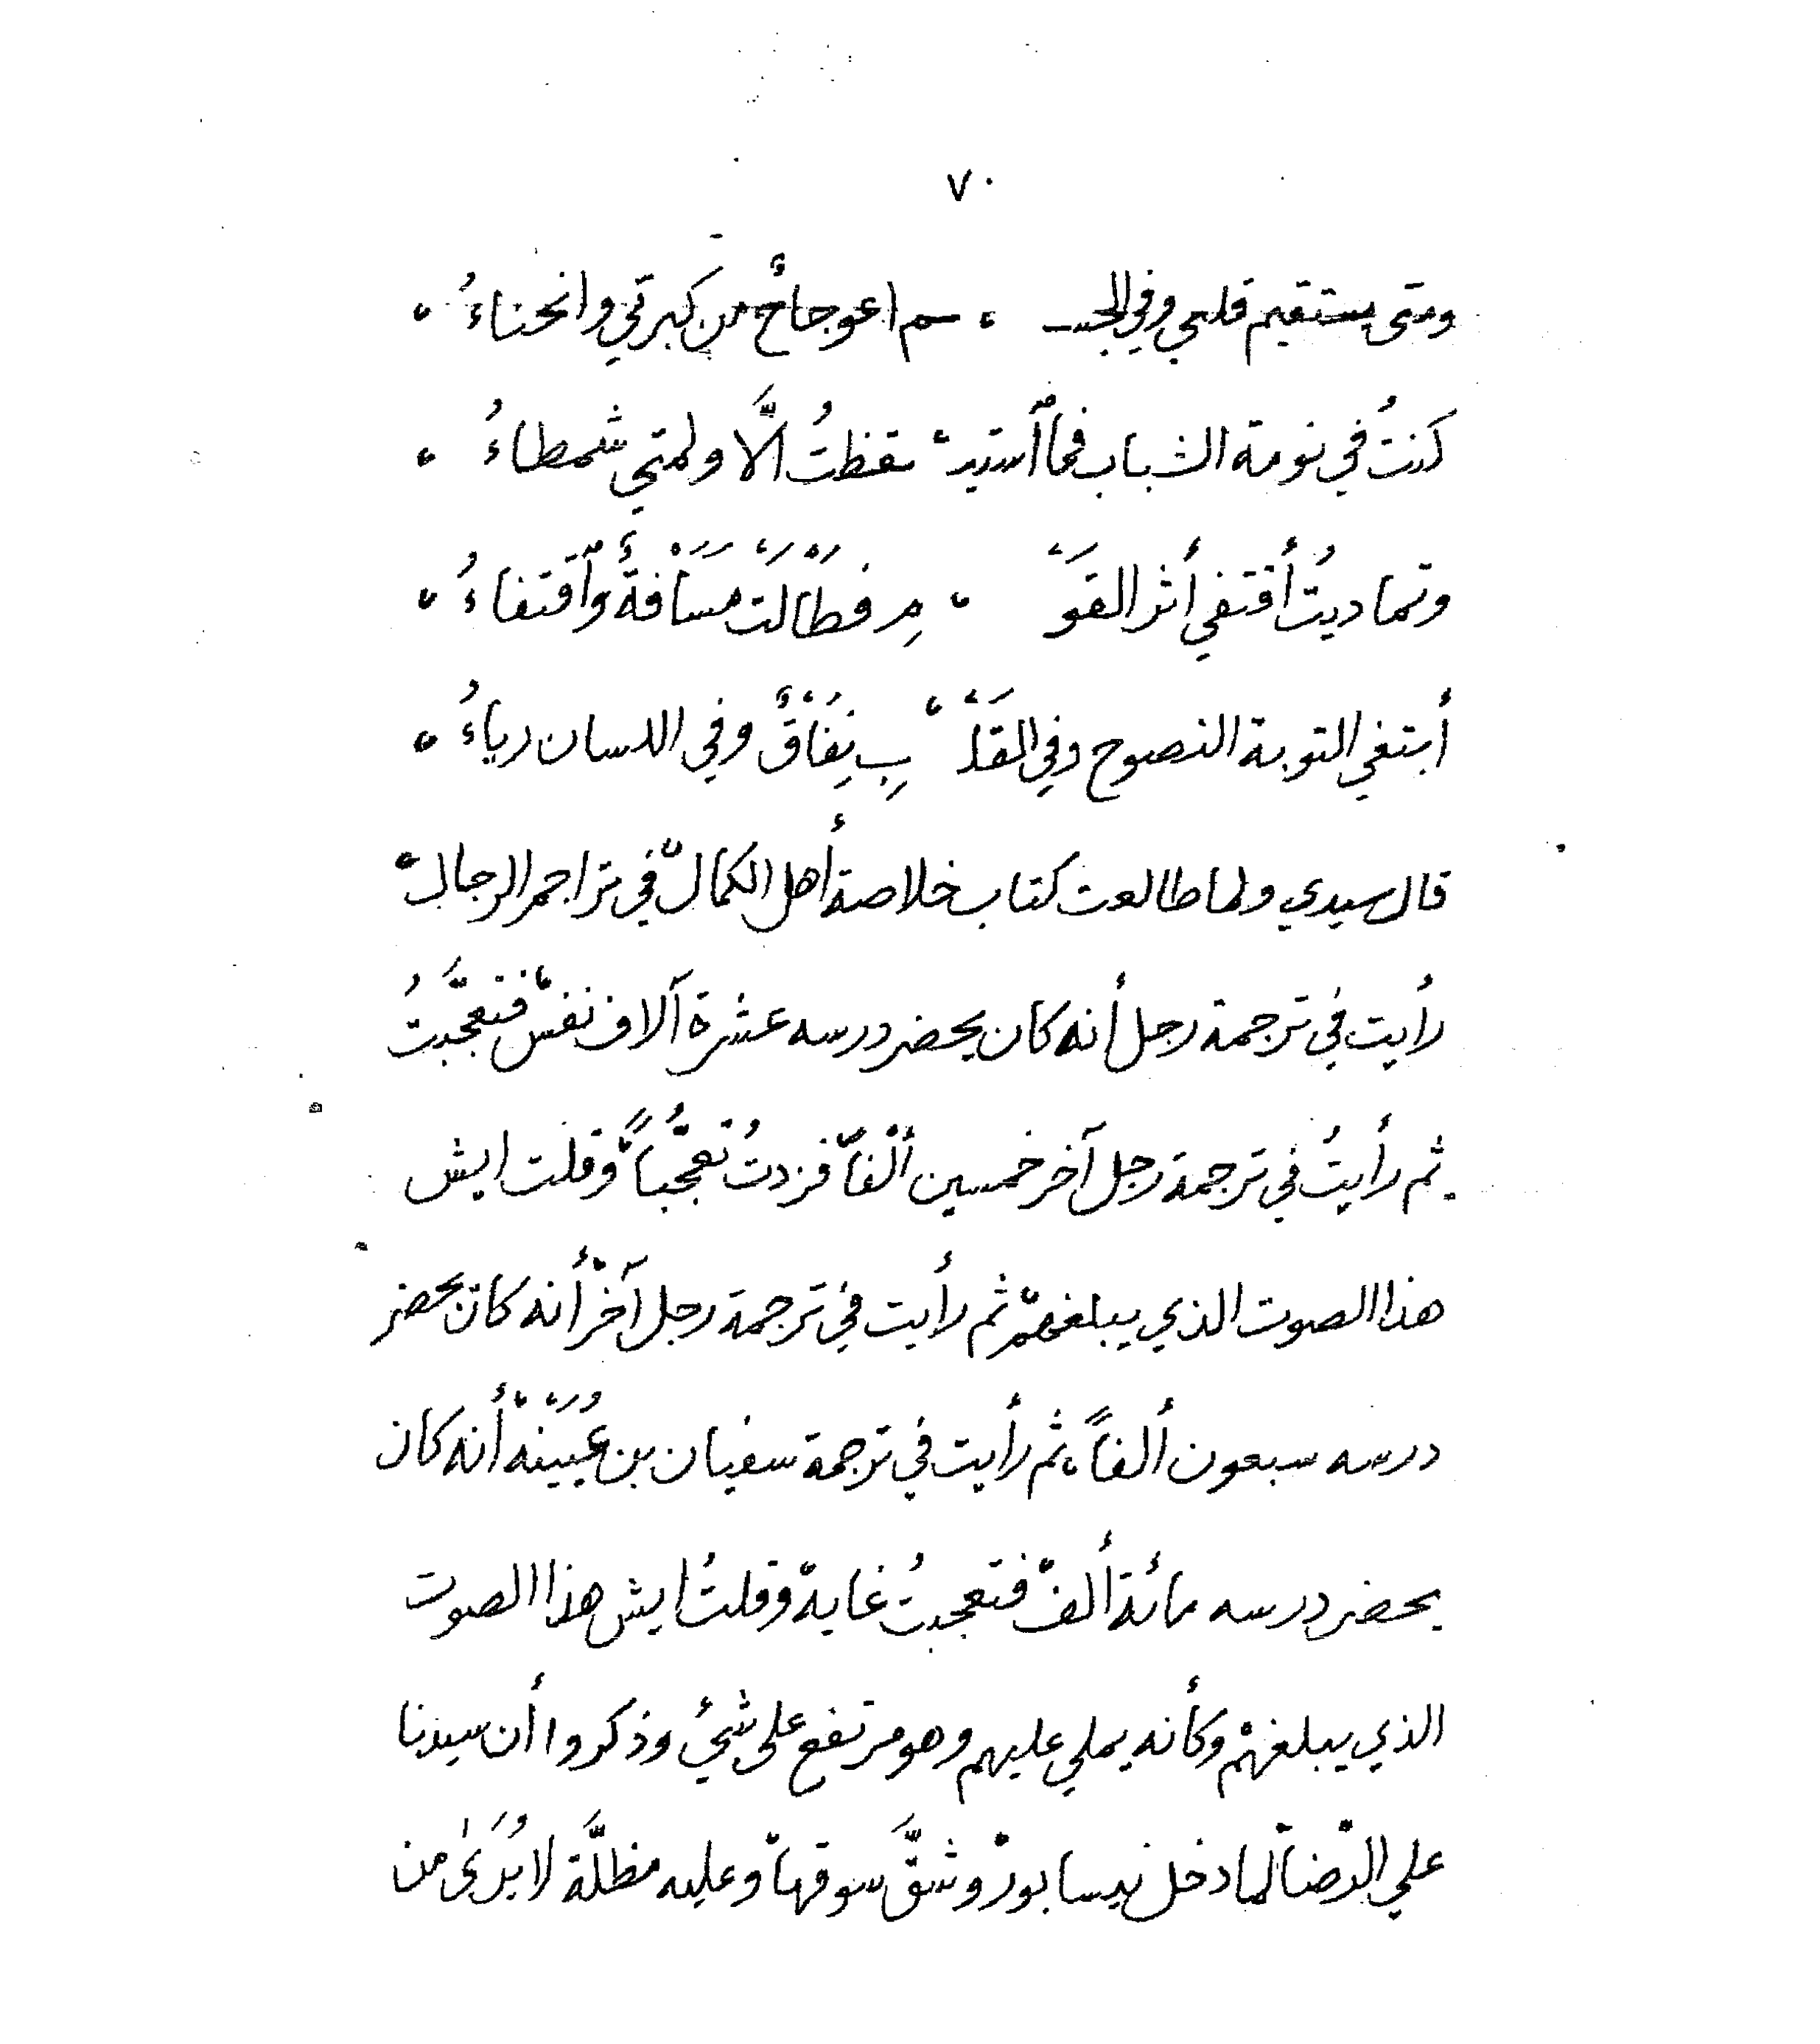 ٧٠
ومتى يستقيم قلبي وفي الجسـ ، ـم اعوجاجٌ من كبرتي وانحناءُ ،
كنتُ في نومة الشباب فما ٱستيـ ، ـقظتُ الَّا ولمتي شمطاءُ ،
وتماديتُ أقتفي أثر القَوْ ، مِ فطَالَتْ مَسَافةٌ وٱقتفاءُ ،
أبتغي التوبة النصوح وفي القَلْـ ، ـبِ نِفَاقٌ وفي اللسان رياءُ ،
قال سيدي ولما طالعت كتاب خلاصة أهل الكمال، في تراجم الرجال،
رأيت في ترجمة رجل أنه كان يحضر درسه عشرة آلاف نفس، فتعجَّبتُ
ثم رأيتُ في ترجمة رجل آخر خمسين ألفاً، فزدتُ تعجُّباً، وقلت ايش
هذا الصوت الذي يبلغهم، ثم رأيت في ترجمة رجل آخر، أنه كان يحضر
درسه سبعون ألفاً، ثم رأيت في ترجمة سفيان بن عُيَيْنَة، أنه كان
يحضر درسه مائة ألف، فتعجبتُ غاية، وقلتُ ايش هذا الصوت
الذي يبلغهم، وكأنه يملي عليهم وهو مرتفع على شيْء وذكروا أن سيدنا
علي الرّضا، لما دخل نيسابور، وشقَّ سوقها، وعليه مظلَّة لا يُرَىٰ من